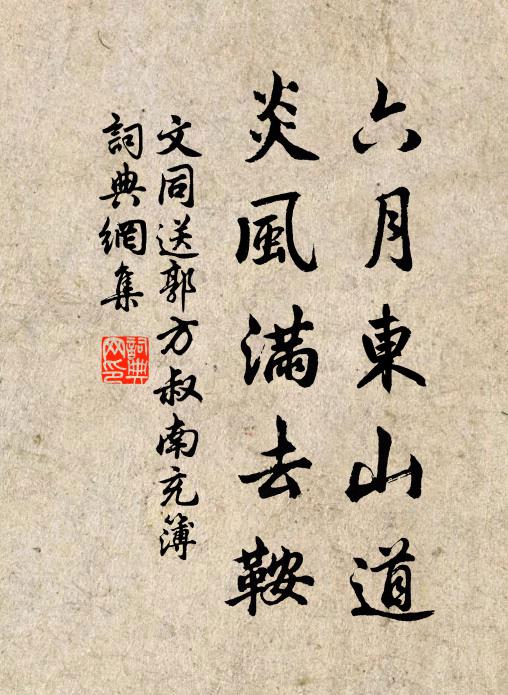 六月東山道
炎風滿去鞍
文同送郭方叔南充簿
詞典網集
詞典
网印